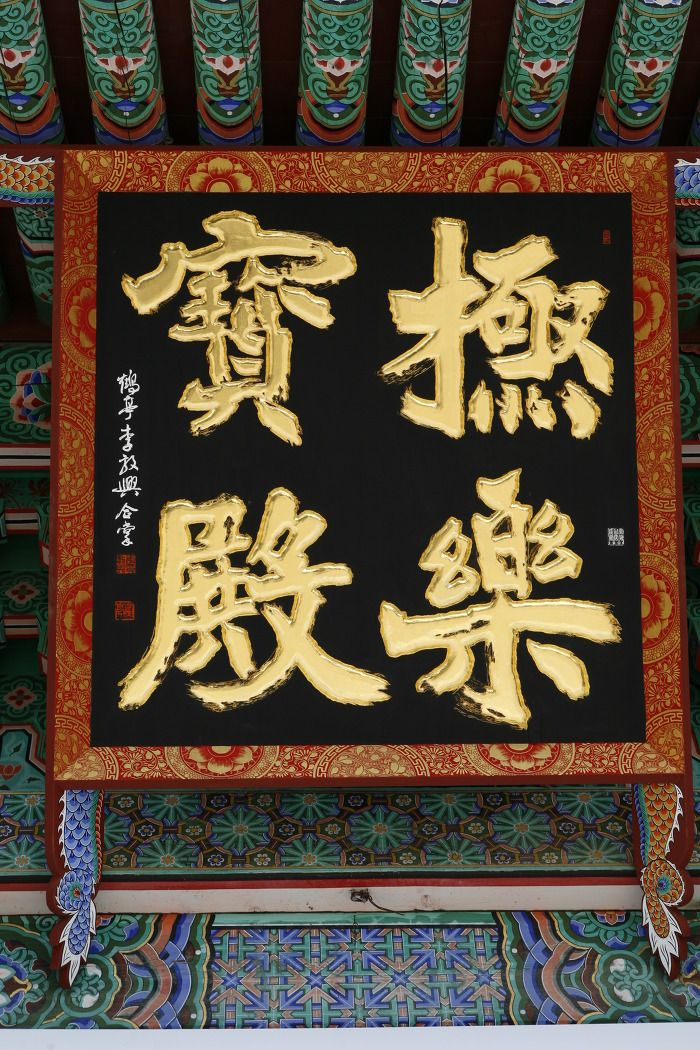 極樂
寶殿
鶴亭李敦興合掌